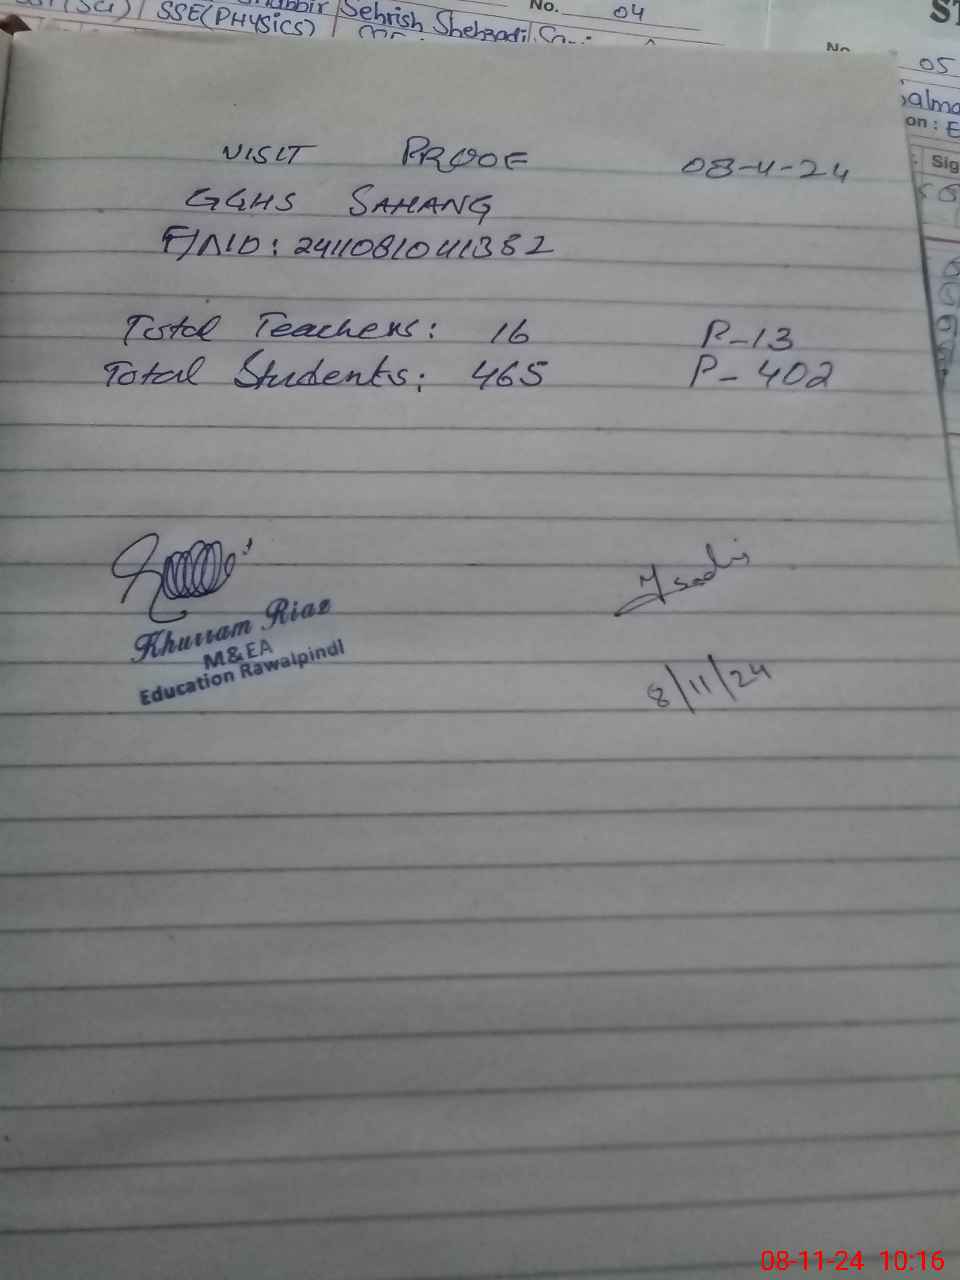 SSE(PHYSICS)
Sehrish Shehzadi
No. 04
No. 05
on : E
Sig
VISIT PROOF 08-11-24
GGHS SAHANG
Total Teachers: 16 P-13
Total Students: 465 P-402
Khurram Riaz
M&EA
Education Rawalpindi
8/11/24
08-11-24 10:16